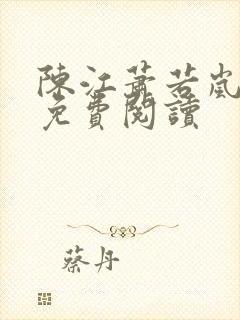 陳江蕭若嵐
免費閱讀
蔡丹